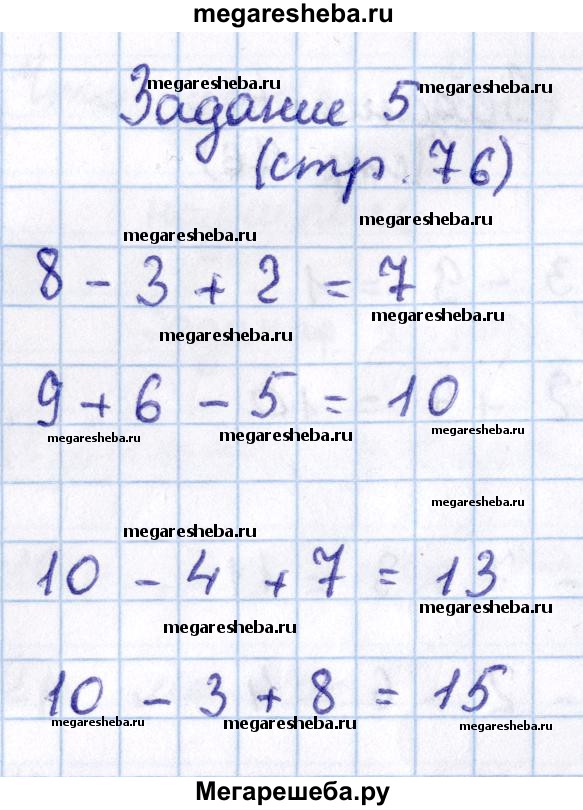 megaresheba.ru
Задание 5
megaresheba.ru
megaresheba.ru
(стр. 76)
megaresheba.ru
megaresheba.ru
8 - 3 + 2 = 7
megaresheba.ru
megaresheba.ru
9 + 6 - 5 = 10
megaresheba.ru
megaresheba.ru
megaresheba.ru
megaresheba.ru
megaresheba.ru
10 - 4 + 7 = 13
megaresheba.ru
megaresheba.ru
10 - 3 + 8 = 15
megaresheba.ru
megaresheba.ru
megaresheba.ru
Мегарешеба.ру